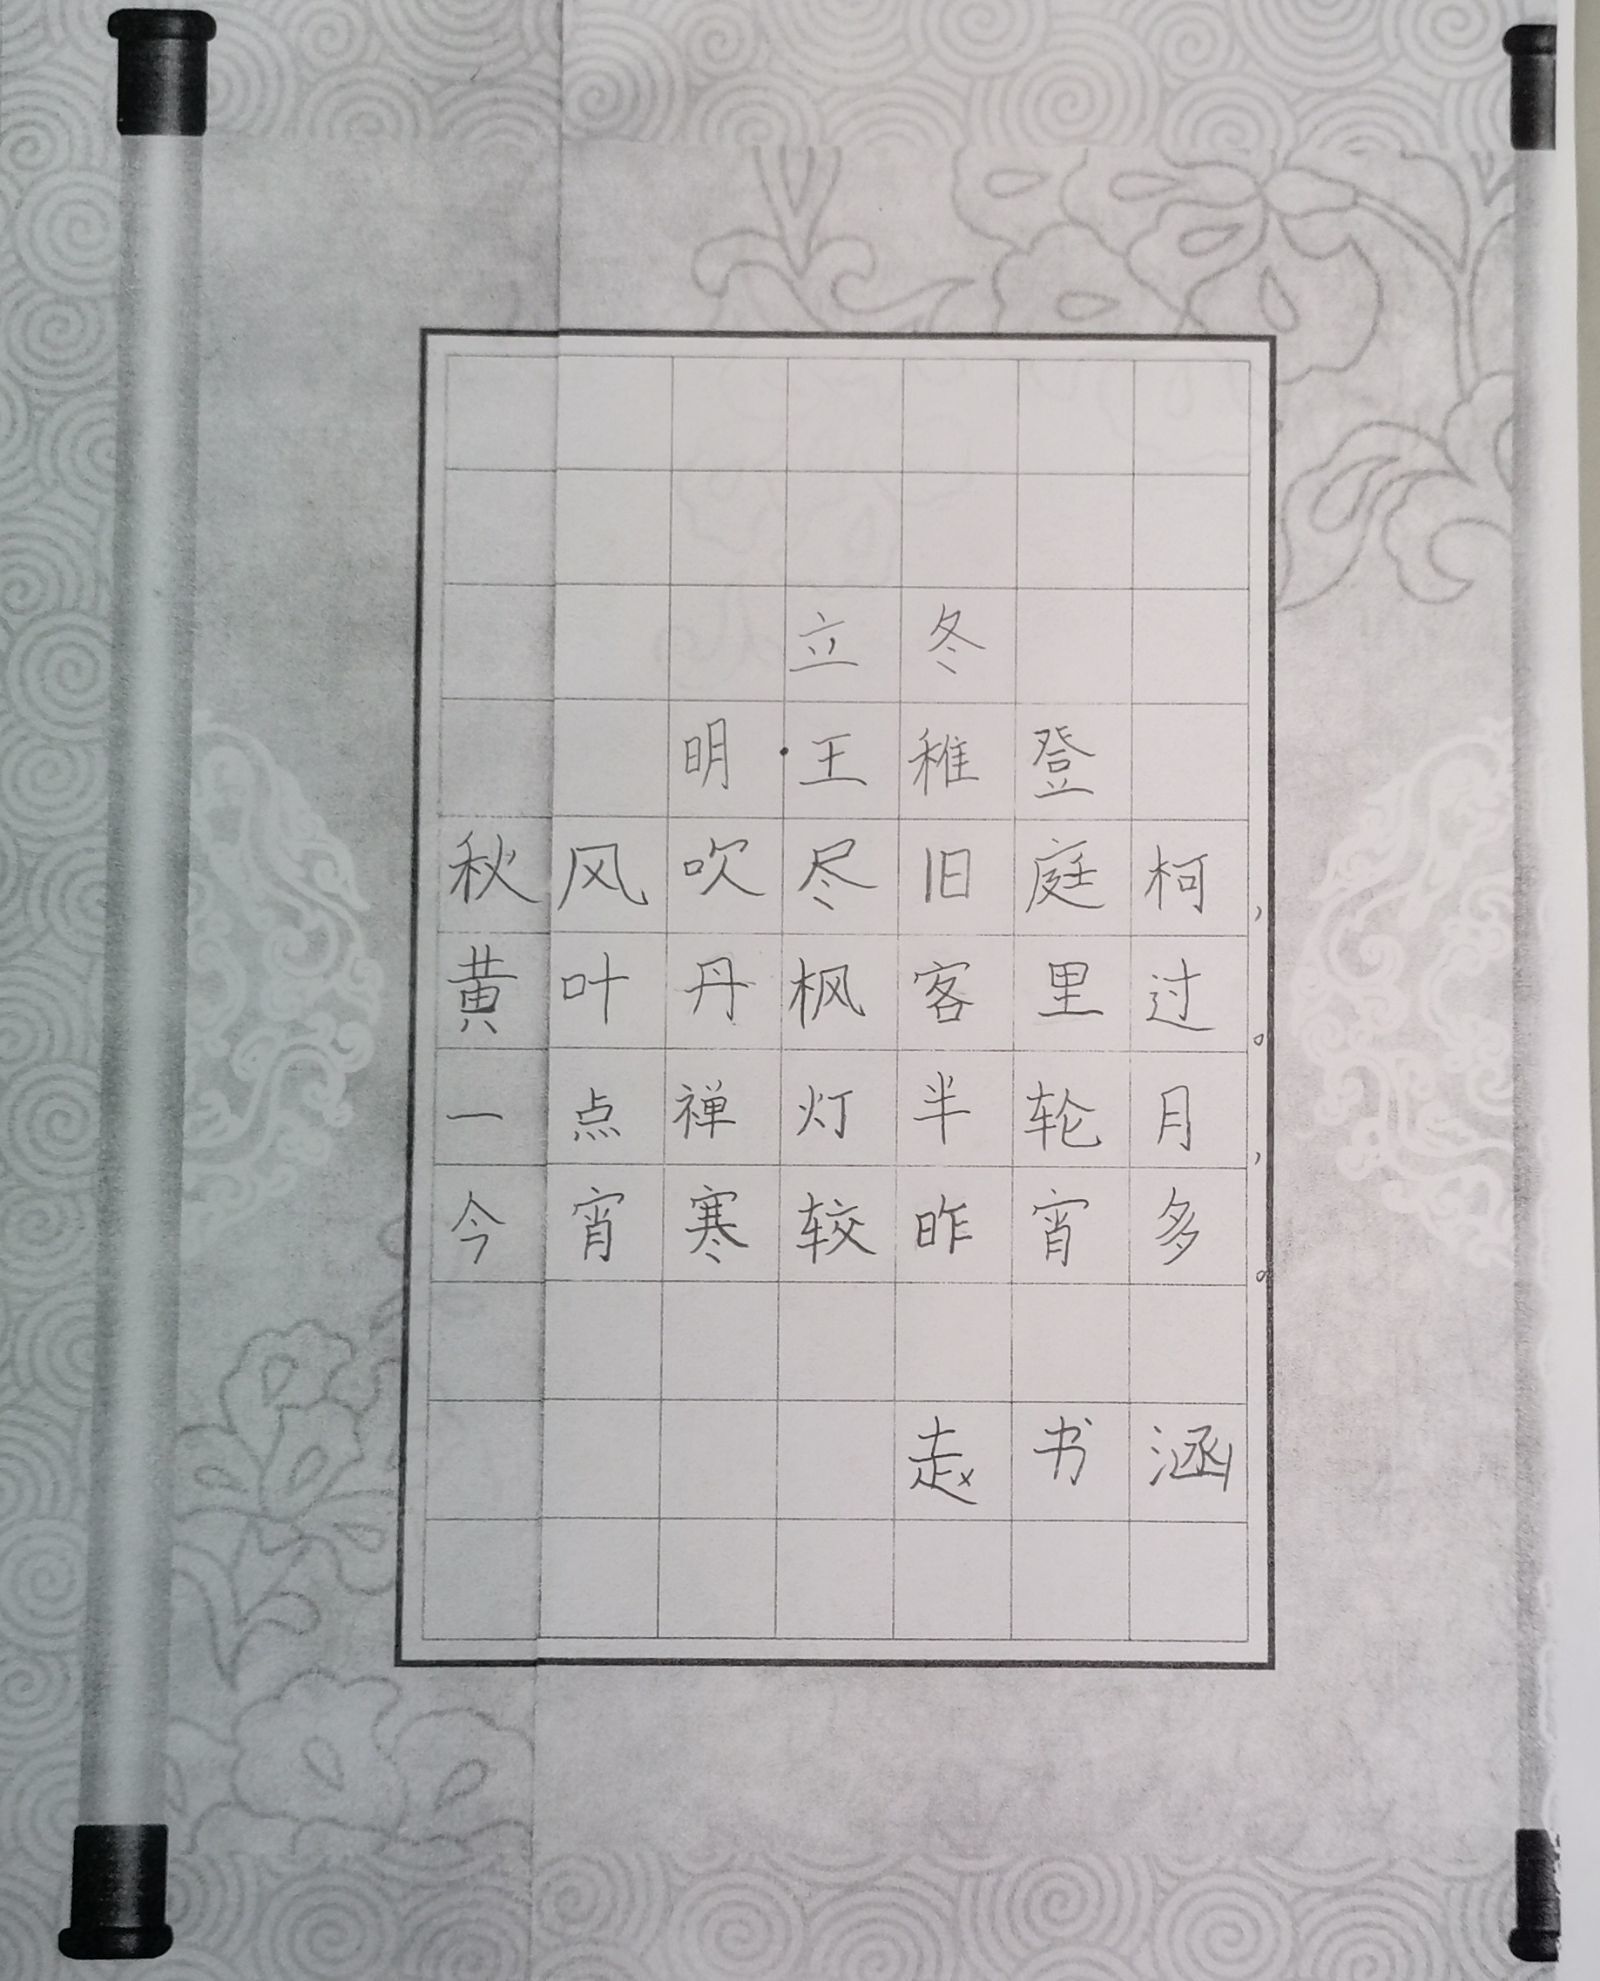 立冬
明·王稚登
秋风吹尽旧庭柯，
黄叶丹枫客里过。
一点禅灯半轮月，
今宵寒较昨宵多。
赵书涵